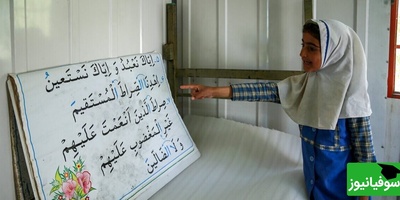 اِیّاکَ نَعْبُدُ وَ اِیّاکَ نَسْتَعینُ
اِهْدِنَا الصِّراطَ الْمُسْتَقیمَ
صِراطَ الَّذینَ اَنْعَمْتَ عَلَیْهِمْ
غَیْرِ الْمَغْضوبِ عَلَیْهِمْ
وَ لَا الضّالّینَ
سوفیانیوز